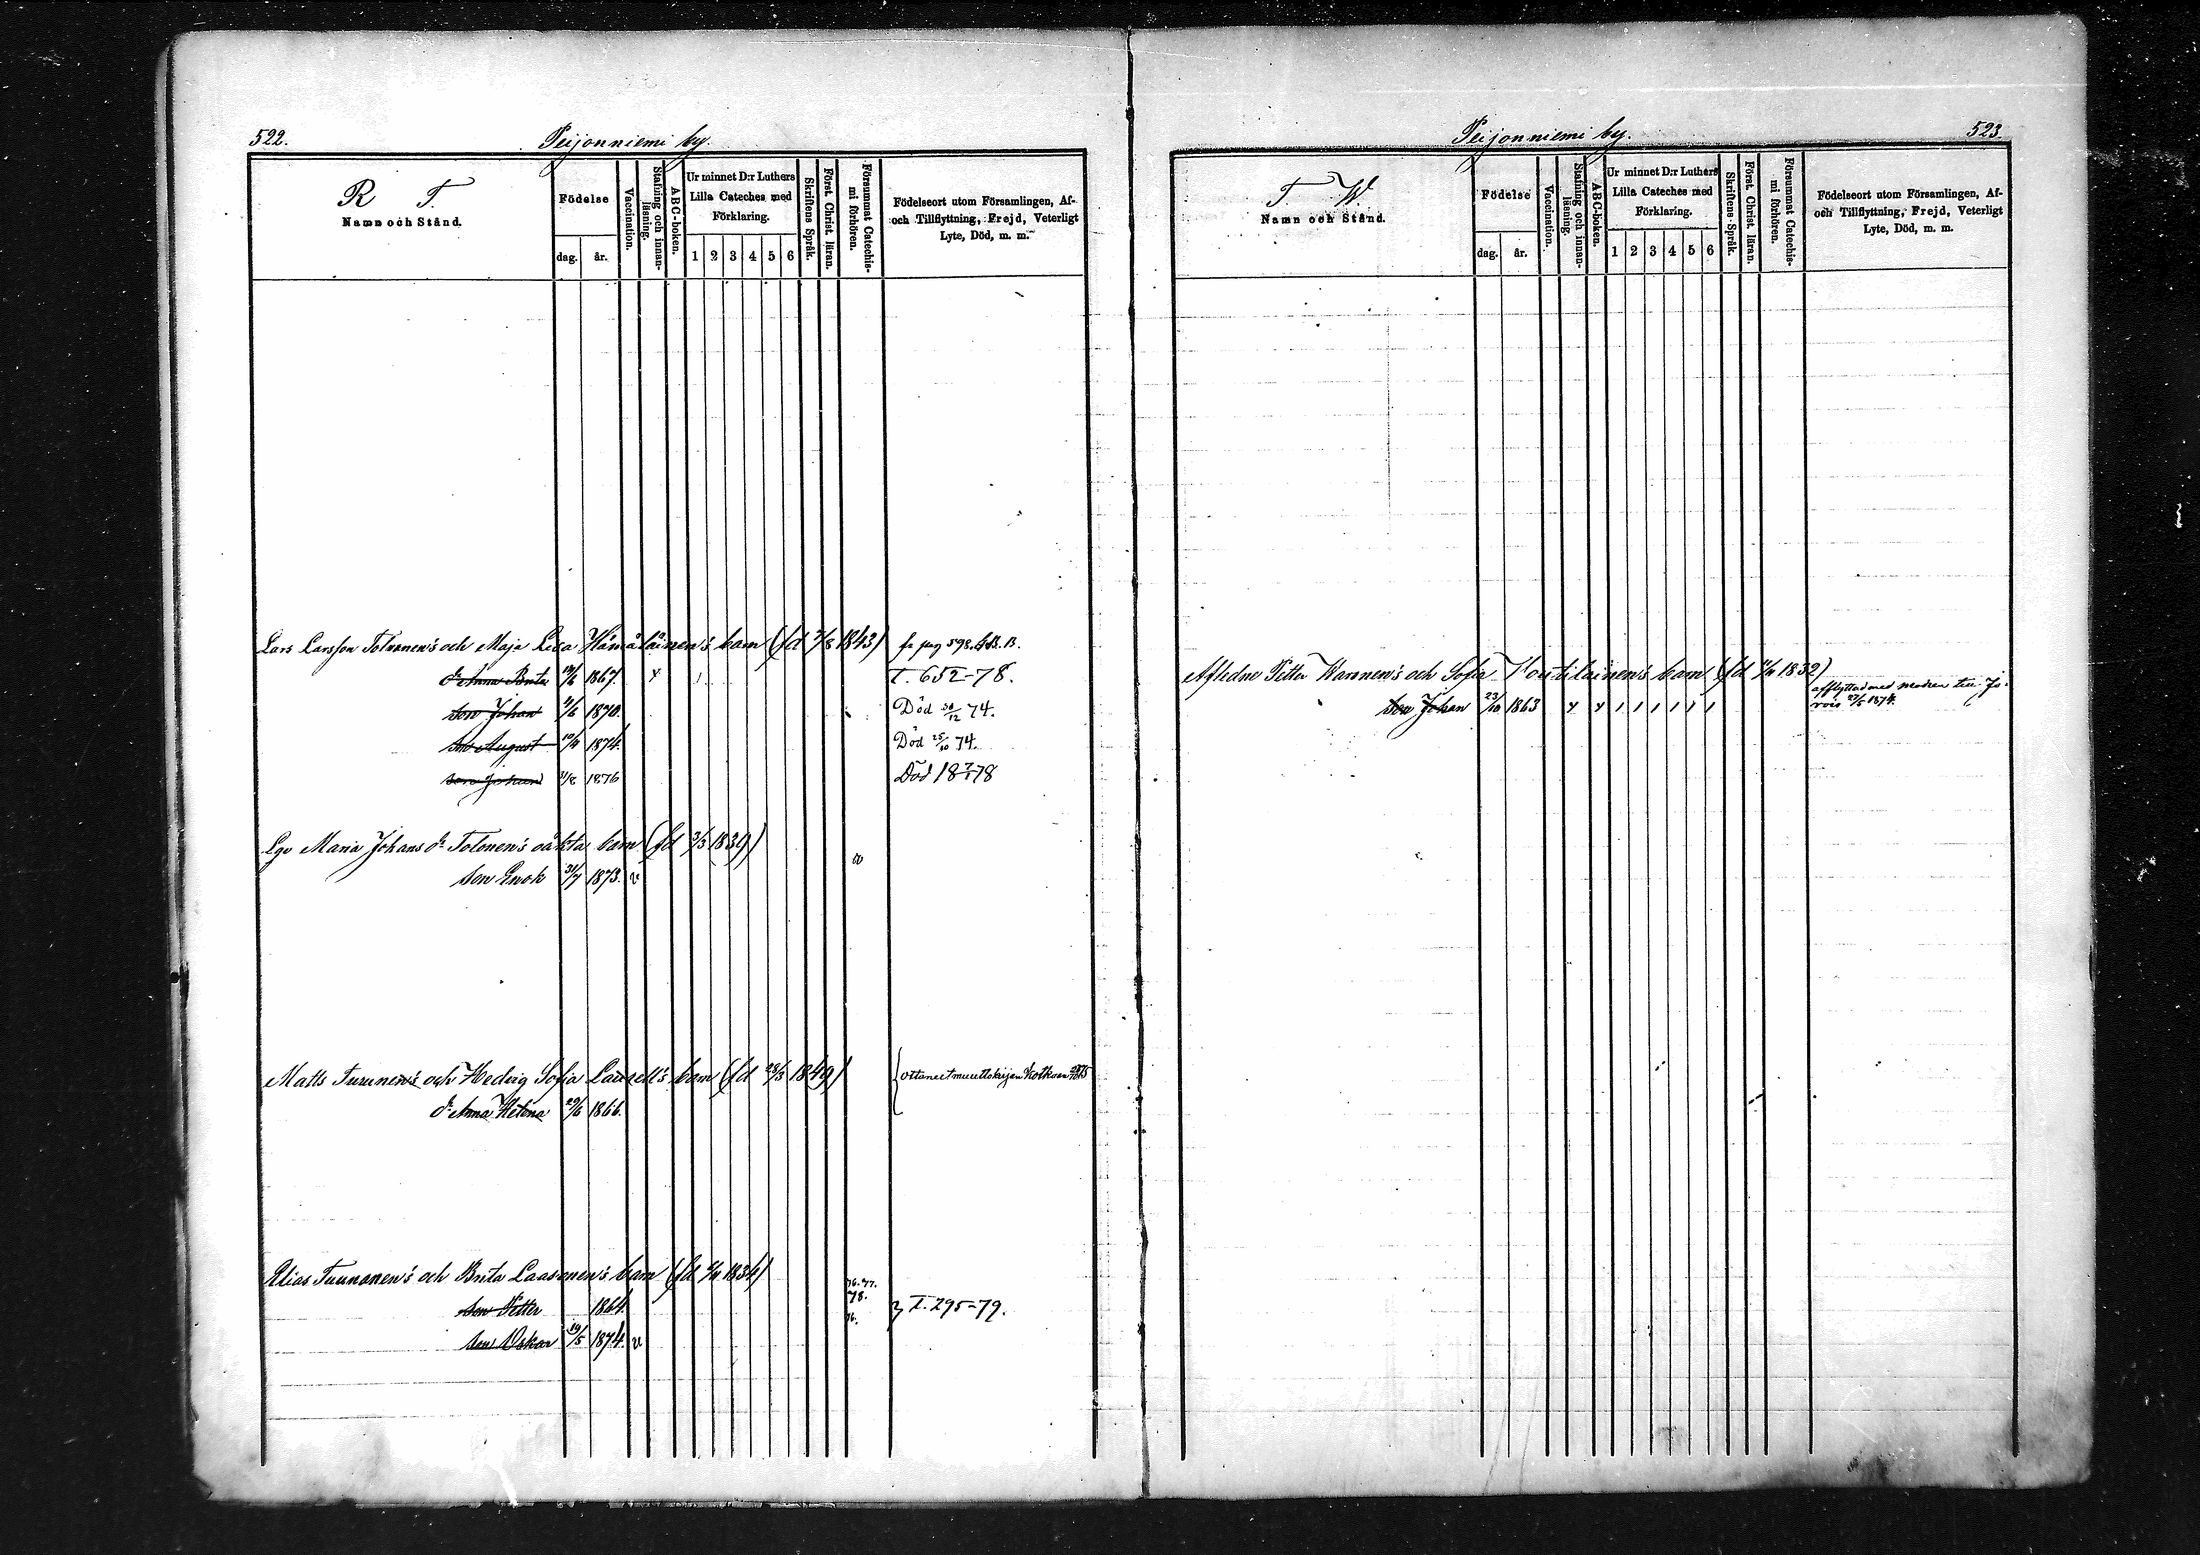 522.
Peijonniemi by.
R T.
Namn och Stånd.
Födelse
dag. år.
Vaccination.
Stafning och innanläsning.
ABC-boken.
Ur minnet D:r Luthers
Lilla Cateches med
Förklaring.
1 2 3 4 5 6
Skriftens Språk.
Först. Christ. läran.
Försummat Catechismi förhören.
Födelseort utom Församlingen, Af-
och Tillflyttning, Frejd, Veterligt
Lyte, Död, m. m.
Lars Larsson Tolvanen's och Maja Lisa Hämäläinen's barn (fd 7/8 1843) fr pag 598. B.
dr Anna Brita 1867. x T. 652-78.
son Johan 1870. Död 30/12 74.
son August 10/9 1874. Död 25/10 74.
son Johan 1876 Död 18 7/1 78
Lgv Maria Johans dr Tolonen's oäkta barn (fd 3/3 1839)
son Enok 31/7 1873. v
Matts Turunen's och Hedvig Sofia Laurell's barn (fd 28/3 1849) ottaneet muuttokirjan Kotkaan
dr Anna Helena 29/6 1866.
Elias Tuunanen's och Brita Laasonen's barn (fd 1834)
76. 77.
78.
son Petter 1864. T. 295-79.
76.
son Oskar 19/5 1874. v
Peijonniemi by.
523.
T W.
Namn och Stånd.
Födelse
dag. år.
Vaccination.
Stafning och innanläsning.
ABC-boken.
Ur minnet D:r Luthers
Lilla Cateches med
Förklaring.
1 2 3 4 5 6
Skriftens Språk.
Först. Christ. läran.
Försummat Catechismi förhören.
Födelseort utom Församlingen, Af-
och Tillflyttning, Frejd, Veterligt
Lyte, Död, m. m.
Afledne Petter Karonen's och Sofia Voutilainen's barn (fd 1832)
son Johan 23/10 1863 x x 1 1 1 1 1 1 afflyttad med modren till Jo-
rois 27/5 1874.